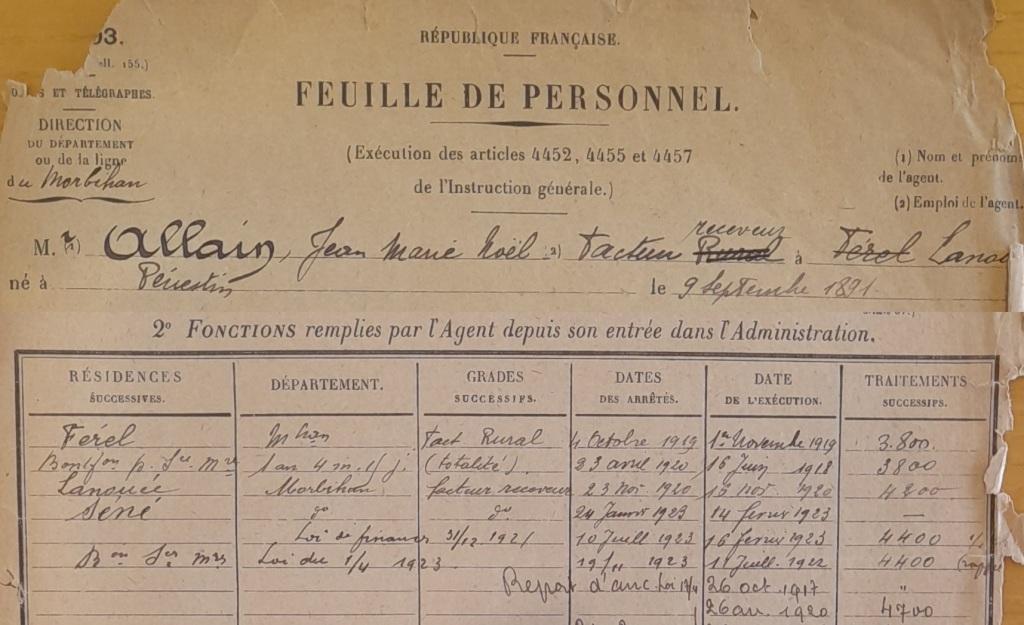 93.
ell. 155.)
RÉPUBLIQUE FRANÇAISE.
ET TÉLÉGRAPHES.
FEUILLE DE PERSONNEL.
DIRECTION
DU DÉPARTEMENT
ou de la ligne
du Morbihan
(Exécution des articles 4452, 4455 et 4457
de l'Instruction générale.)
(1) Nom et prénoms
de l'agent.
(2) Emploi de l'agent.
receveur
M. Allain, Jean Marie Noël 2) Facteur Rural à Férel Lanou
né à Pénestin le 9 Septembre 1891
2° FONCTIONS remplies par l'Agent depuis son entrée dans l'Administration.
RÉSIDENCES SUCCESSIVES. DÉPARTEMENT. GRADES SUCCESSIFS. DATES DES ARRÊTÉS. DATE DE L'EXÉCUTION. TRAITEMENTS SUCCESSIFS.
Férel Mhan fact Rural 4 Octobre 1919 1er Novembre 1919 3.800.
p. Sce Mre 1 an 4 m. j. (totalité). 23 avril 1920 16 Juin 1918 3800
Lanouée Morbihan facteur receveur 23 Nov. 1920 nov. 1920 4200
Séné do do 24 Janvier 1923 14 février 1923 —
Loi de finances 31/12 1921 10 Juill 1923 16 février 1923 4400
Bon Ser mre Loi du 1/4 1923. 19 1923 Juill. 1922 4400
Report d'anc. Loi 26 oct 1917 "
1920 4700